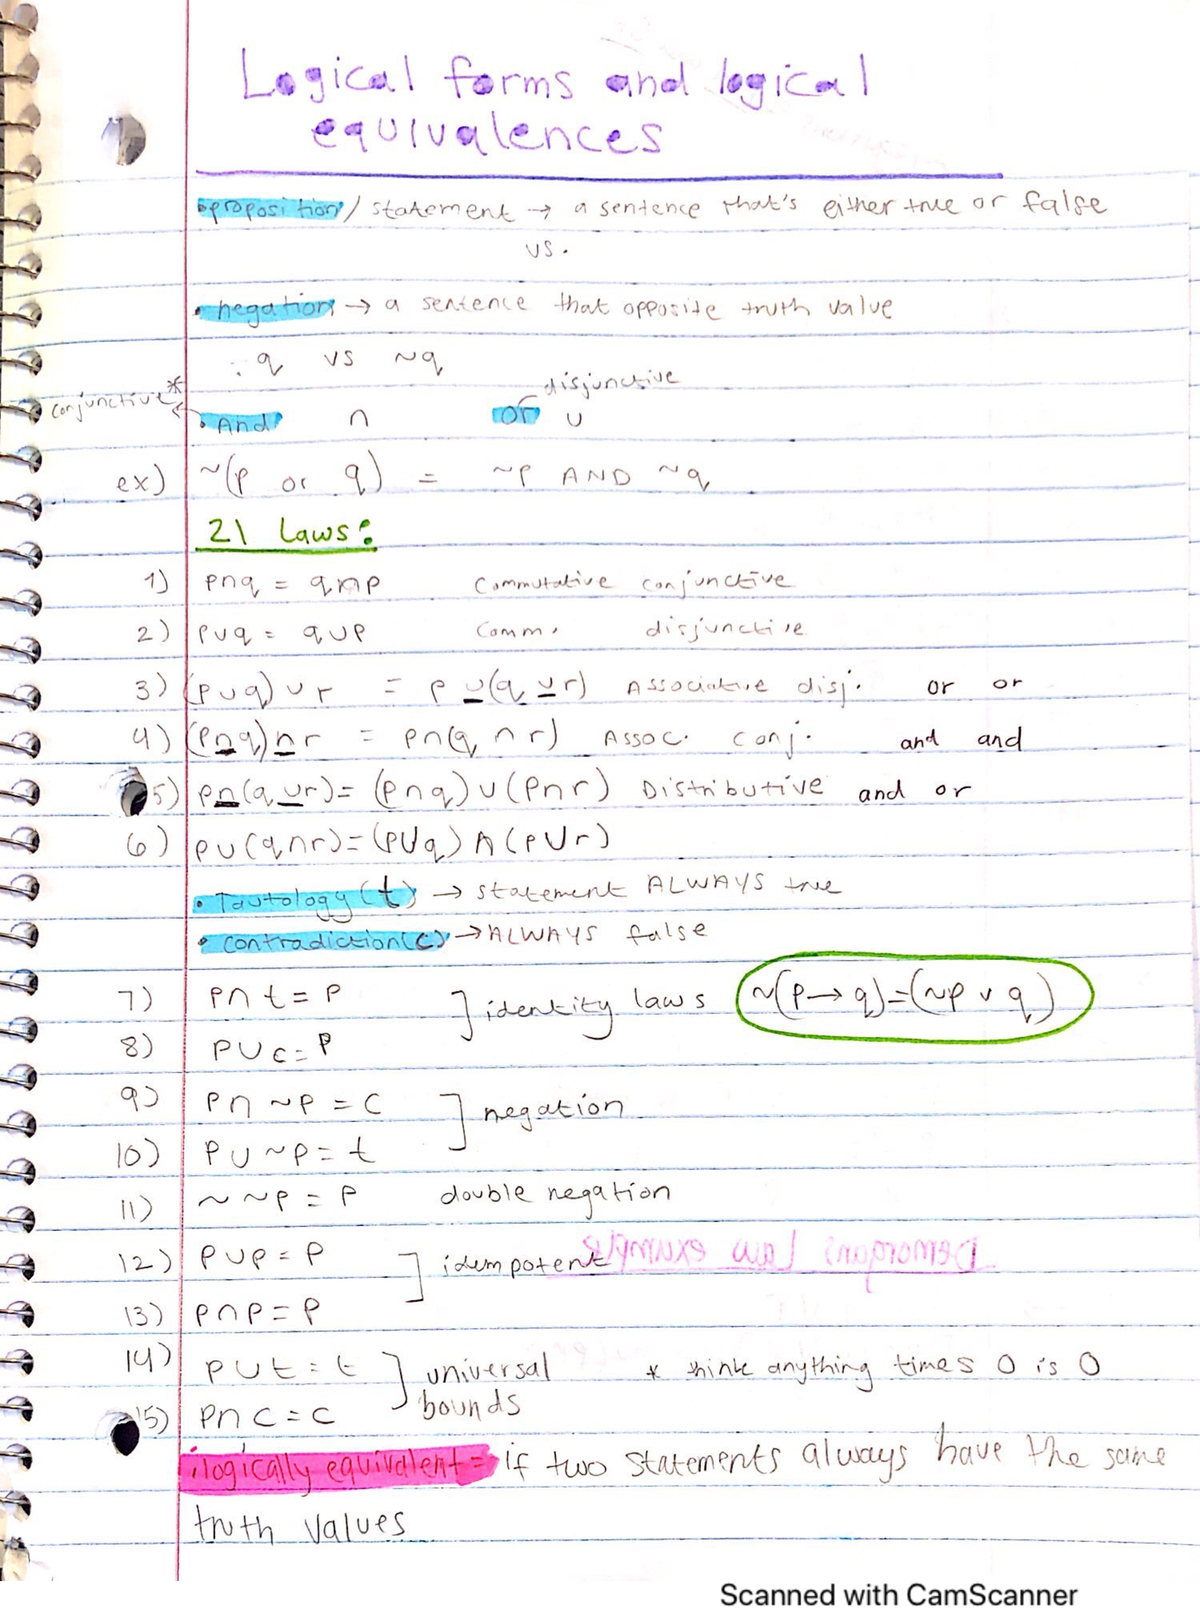 Logical forms and logical
equivalences
• proposition / statement → a sentence that's either true or false
vs.
• negation → a sentence that opposite truth value
: q vs ~q
disjunctive
conjunctive *
• And ∩ or ∪
ex) ~(p or q) = ~p AND ~q
21 Laws:
1) p∩q = q∩p Commutative conjunctive
2) p∪q = q∪p Comm. disjunctive
3) (p∪q)∪r = p∪(q∪r) Associative disj. or or
4) (p∩q)∩r = p∩(q∩r) Assoc. conj. and and
5) p∩(q∪r)= (p∩q)∪(p∩r) Distributive and or
6) p∪(q∩r)=(p∪q)∩(p∪r)
• Tautology (t) → statement ALWAYS true
• contradiction(c) → ALWAYS false
7) p∩t = p ] identity laws ~(p→q)=(~p ∨ q)
8) p∪c = p
9) p∩~p = c ] negation
10) p∪~p = t
11) ~~p = p double negation
12) p∪p = p ] idempotent
Demorgans Law example
13) p∩p = p
14) p∪t = t ] universal * think anything times 0 is 0
bounds
15) p∩c = c
• logically equivalent = if two statements always have the same
truth values
Scanned with CamScanner